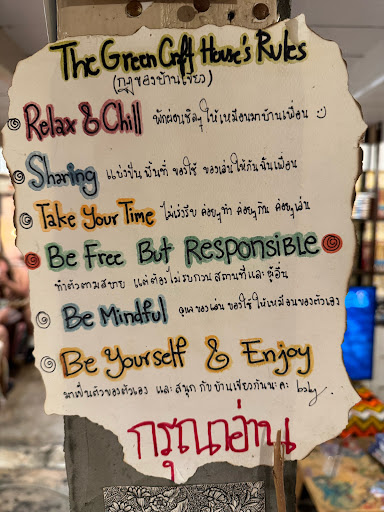 The Green Craft House's Rules
(กฎของบ้านเขียว)
Relax & Chill พักผ่อนชิลๆ ให้เหมือนมาบ้านเพื่อน :)
Sharing แบ่งปัน พื้นที่ ของใช้ ของเล่นให้กันนั้นเพื่อน
Take Your Time ไม่เร่งรีบ ค่อยๆทำ ค่อยๆกิน ค่อยๆเล่น
Be Free But RESPONSIBLE
ทำตัวตามสบาย แต่ต้องไม่รบกวน สถานที่และผู้อื่น
Be Mindful ดูแลของเล่น ของใช้ ให้เหมือนของตัวเอง
Be Yourself & Enjoy
มาเป็นตัวของตัวเอง และสนุก กับบ้านเขียวกันนะคะ baby.
กรุณาอ่าน